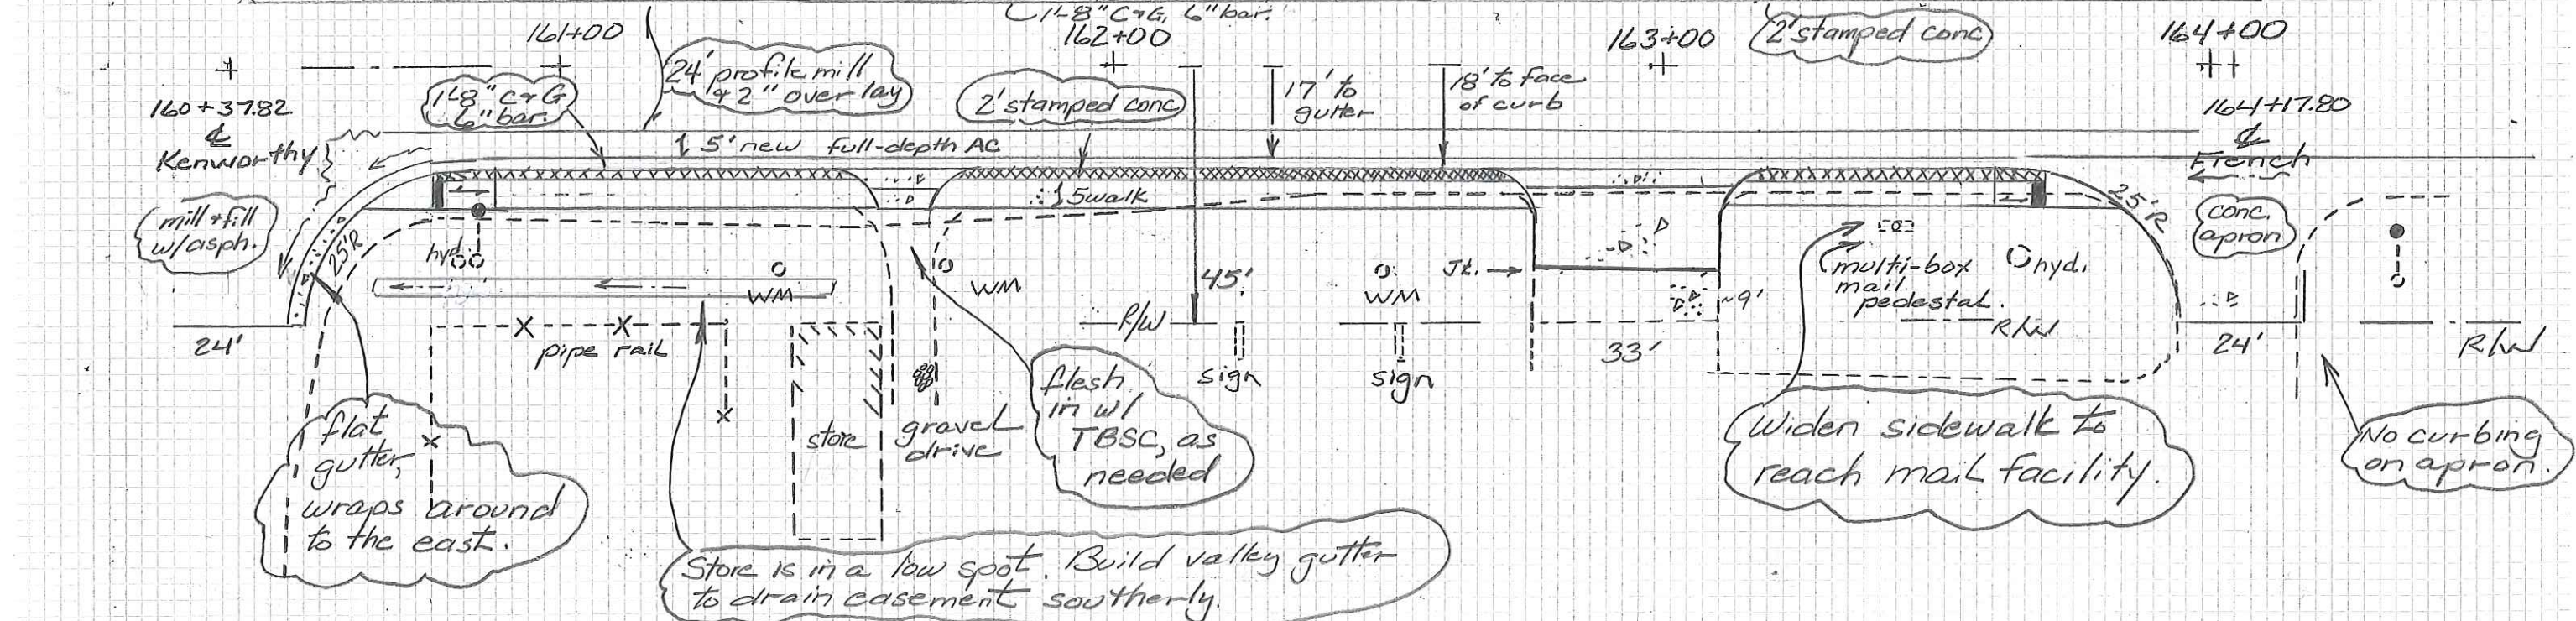 1'-8" C&G, 6" bar.
161+00
162+00
163+00
2' stamped conc
164+00
24' profile mill
& 2" overlay
1'-8" C&G
6" bar.
2' stamped conc
17' to
gutter
18' to face
of curb
160+37.82
℄
Kenworthy
164+17.80
℄
French
5' new full-depth AC
mill & fill
w/asph.
25'R
hyd.
5' walk
25'R
conc.
apron
WM
WM
45'
WM
Jt.
~9'
multi-box
mail
pedestal.
hyd.
24'
pipe rail
R/W
sign
sign
33'
R/W
24'
R/W
flat
gutter,
wraps around
to the east.
store
gravel
drive
flesh
in w/
TBSC, as
needed
Widen sidewalk to
reach mail facility.
No curbing
on apron.
Store is in a low spot. Build valley gutter
to drain easement southerly.